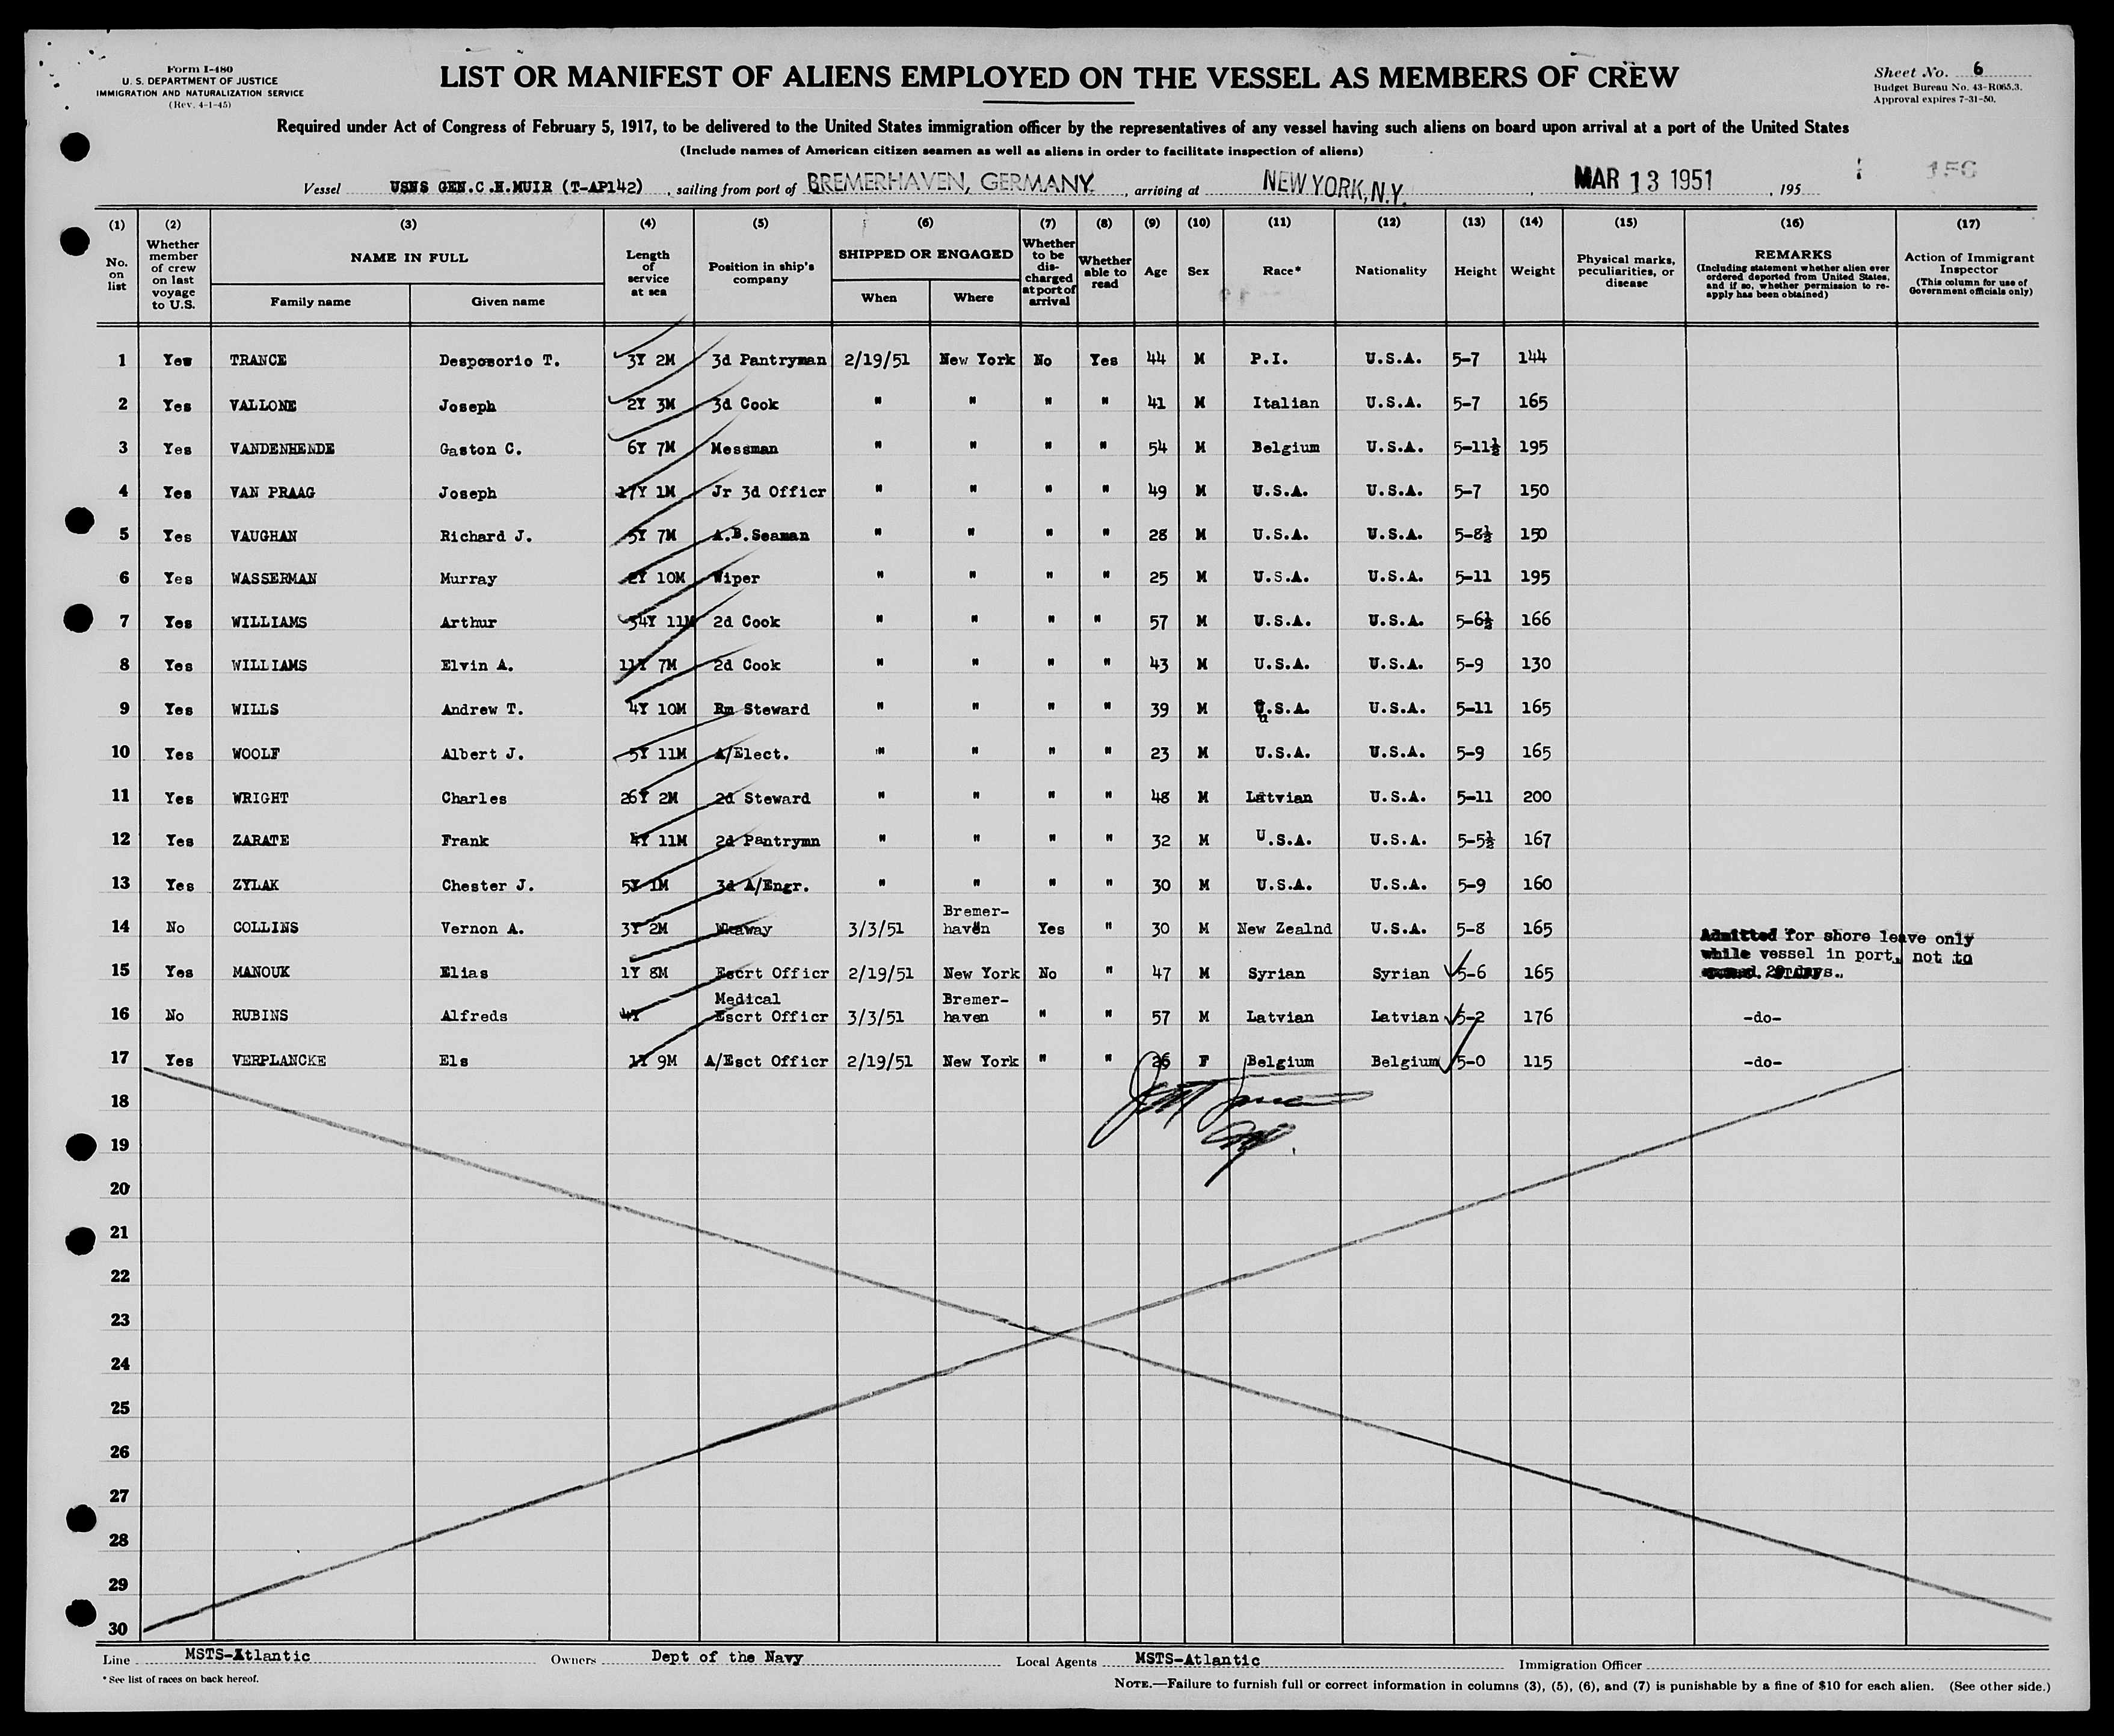 Form I-480
U. S. DEPARTMENT OF JUSTICE
IMMIGRATION AND NATURALIZATION SERVICE
(Rev. 4-1-45)
LIST OR MANIFEST OF ALIENS EMPLOYED ON THE VESSEL AS MEMBERS OF CREW
Sheet No. 6
Budget Bureau No. 43-R065.3.
Approval expires 7-31-50.
Required under Act of Congress of February 5, 1917, to be delivered to the United States immigration officer by the representatives of any vessel having such aliens on board upon arrival at a port of the United States
(Include names of American citizen seamen as well as aliens in order to facilitate inspection of aliens)
Vessel USNS GEN.C.H.MUIR (T-AP142), sailing from port of BREMERHAVEN, GERMANY, arriving at NEW YORK, N.Y., MAR 13 1951, 195
(1) No. on list
(2) Whether member of crew on last voyage to U.S.
(3) NAME IN FULL Family name Given name
(4) Length of service at sea
(5) Position in ship's company
(6) SHIPPED OR ENGAGED When Where
(7) Whether to be discharged at port of arrival
(8) Whether able to read
(9) Age
(10) Sex
(11) Race*
(12) Nationality
(13) Height
(14) Weight
(15) Physical marks, peculiarities, or disease
(16) REMARKS (Including statement whether alien ever ordered deported from United States, and if so, whether permission to re-apply has been obtained)
(17) Action of Immigrant Inspector (This column for use of Government officials only)
1 Yes TRANCE Desposorio T. 3Y 2M 3d Pantryman 2/19/51 New York No Yes 44 M P.I. U.S.A. 5-7 144
2 Yes VALLONE Joseph 2Y 3M 3d Cook " " " " 41 M Italian U.S.A. 5-7 165
3 Yes VANDENHENDE Gaston C. 6Y 7M Messman " " " " 54 M Belgium U.S.A. 5-11½ 195
4 Yes VAN PRAAG Joseph 17Y 1M Jr 3d Officr " " " " 49 M U.S.A. U.S.A. 5-7 150
5 Yes VAUGHAN Richard J. 5Y 7M A.B.Seaman " " " " 28 M U.S.A. U.S.A. 5-8½ 150
6 Yes WASSERMAN Murray 2Y 10M Wiper " " " " 25 M U.S.A. U.S.A. 5-11 195
7 Yes WILLIAMS Arthur 34Y 11M 2d Cook " " " " 57 M U.S.A. U.S.A. 5-6½ 166
8 Yes WILLIAMS Elvin A. 11Y 7M 2d Cook " " " " 43 M U.S.A. U.S.A. 5-9 130
9 Yes WILLS Andrew T. 4Y 10M Rm Steward " " " " 39 M U.S.A. U.S.A. 5-11 165
10 Yes WOOLF Albert J. 5Y 11M A/Elect. " " " " 23 M U.S.A. U.S.A. 5-9 165
11 Yes WRIGHT Charles 26Y 2M 2d Steward " " " " 48 M Latvian U.S.A. 5-11 200
12 Yes ZARATE Frank 4Y 11M 2d Pantrymn " " " " 32 M U.S.A. U.S.A. 5-5½ 167
13 Yes ZYLAK Chester J. 5Y 1M 3d A/Engr. " " " " 30 M U.S.A. U.S.A. 5-9 160
14 No COLLINS Vernon A. 3Y 2M Wkaway 3/3/51 Bremerhaven Yes " 30 M New Zealnd U.S.A. 5-8 165
15 Yes MANOUK Elias 1Y 8M Escrt Officr 2/19/51 New York No " 47 M Syrian Syrian 5-6 165 Admitted for shore leave only while vessel in port, not to days.
16 No RUBINS Alfreds 4Y Medical Escrt Officr 3/3/51 Bremerhaven " " 57 M Latvian Latvian 5-2 176 -do-
17 Yes VERPLANCKE Els 1Y 9M A/Esct Officr 2/19/51 New York " " 26 F Belgium Belgium 5-0 115 -do-
18
19
20
21
22
23
24
25
26
27
28
29
30
Line MSTS-Atlantic Owners Dept of the Navy Local Agents MSTS-Atlantic Immigration Officer
* See list of races on back hereof.
NOTE.—Failure to furnish full or correct information in columns (3), (5), (6), and (7) is punishable by a fine of $10 for each alien. (See other side.)